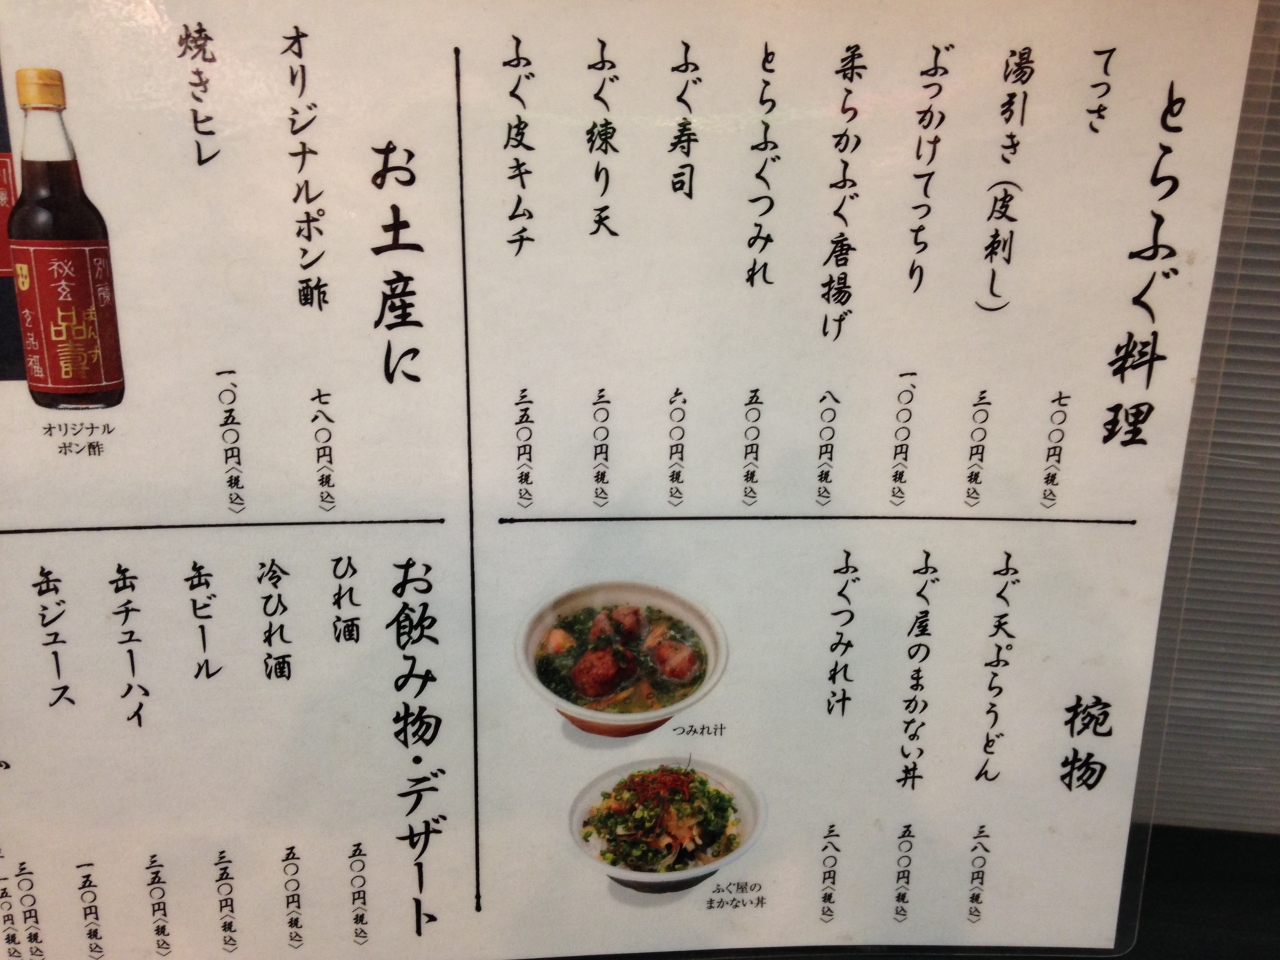 とらふぐ料理
てっさ
七〇〇円〈税込〉
湯引き(皮刺し)
三〇〇円〈税込〉
ぶつかけてっちり
一、〇〇〇円〈税込〉
柔らかふぐ唐揚げ
八〇〇円〈税込〉
とらふぐつみれ
五〇〇円〈税込〉
ふぐ寿司
六〇〇円〈税込〉
ふぐ練り天
三〇〇円〈税込〉
ふぐ皮キムチ
三五〇円〈税込〉
椀物
ふぐ天ぷらうどん
三八〇円〈税込〉
ふぐ屋のまかない丼
五〇〇円〈税込〉
ふぐつみれ汁
三八〇円〈税込〉
つみれ汁
ふぐ屋の
まかない丼
お土産に
オリジナルポン酢
七八〇円〈税込〉
焼きヒレ
一、〇五〇円〈税込〉
オリジナル
ポン酢
お飲み物・デザート
ひれ酒
五〇〇円〈税込〉
冷ひれ酒
五〇〇円〈税込〉
缶ビール
三五〇円〈税込〉
缶チューハイ
三五〇円〈税込〉
缶ジュース
一五〇円〈税込〉
三〇〇円〈税込〉
一五〇円〈税込〉